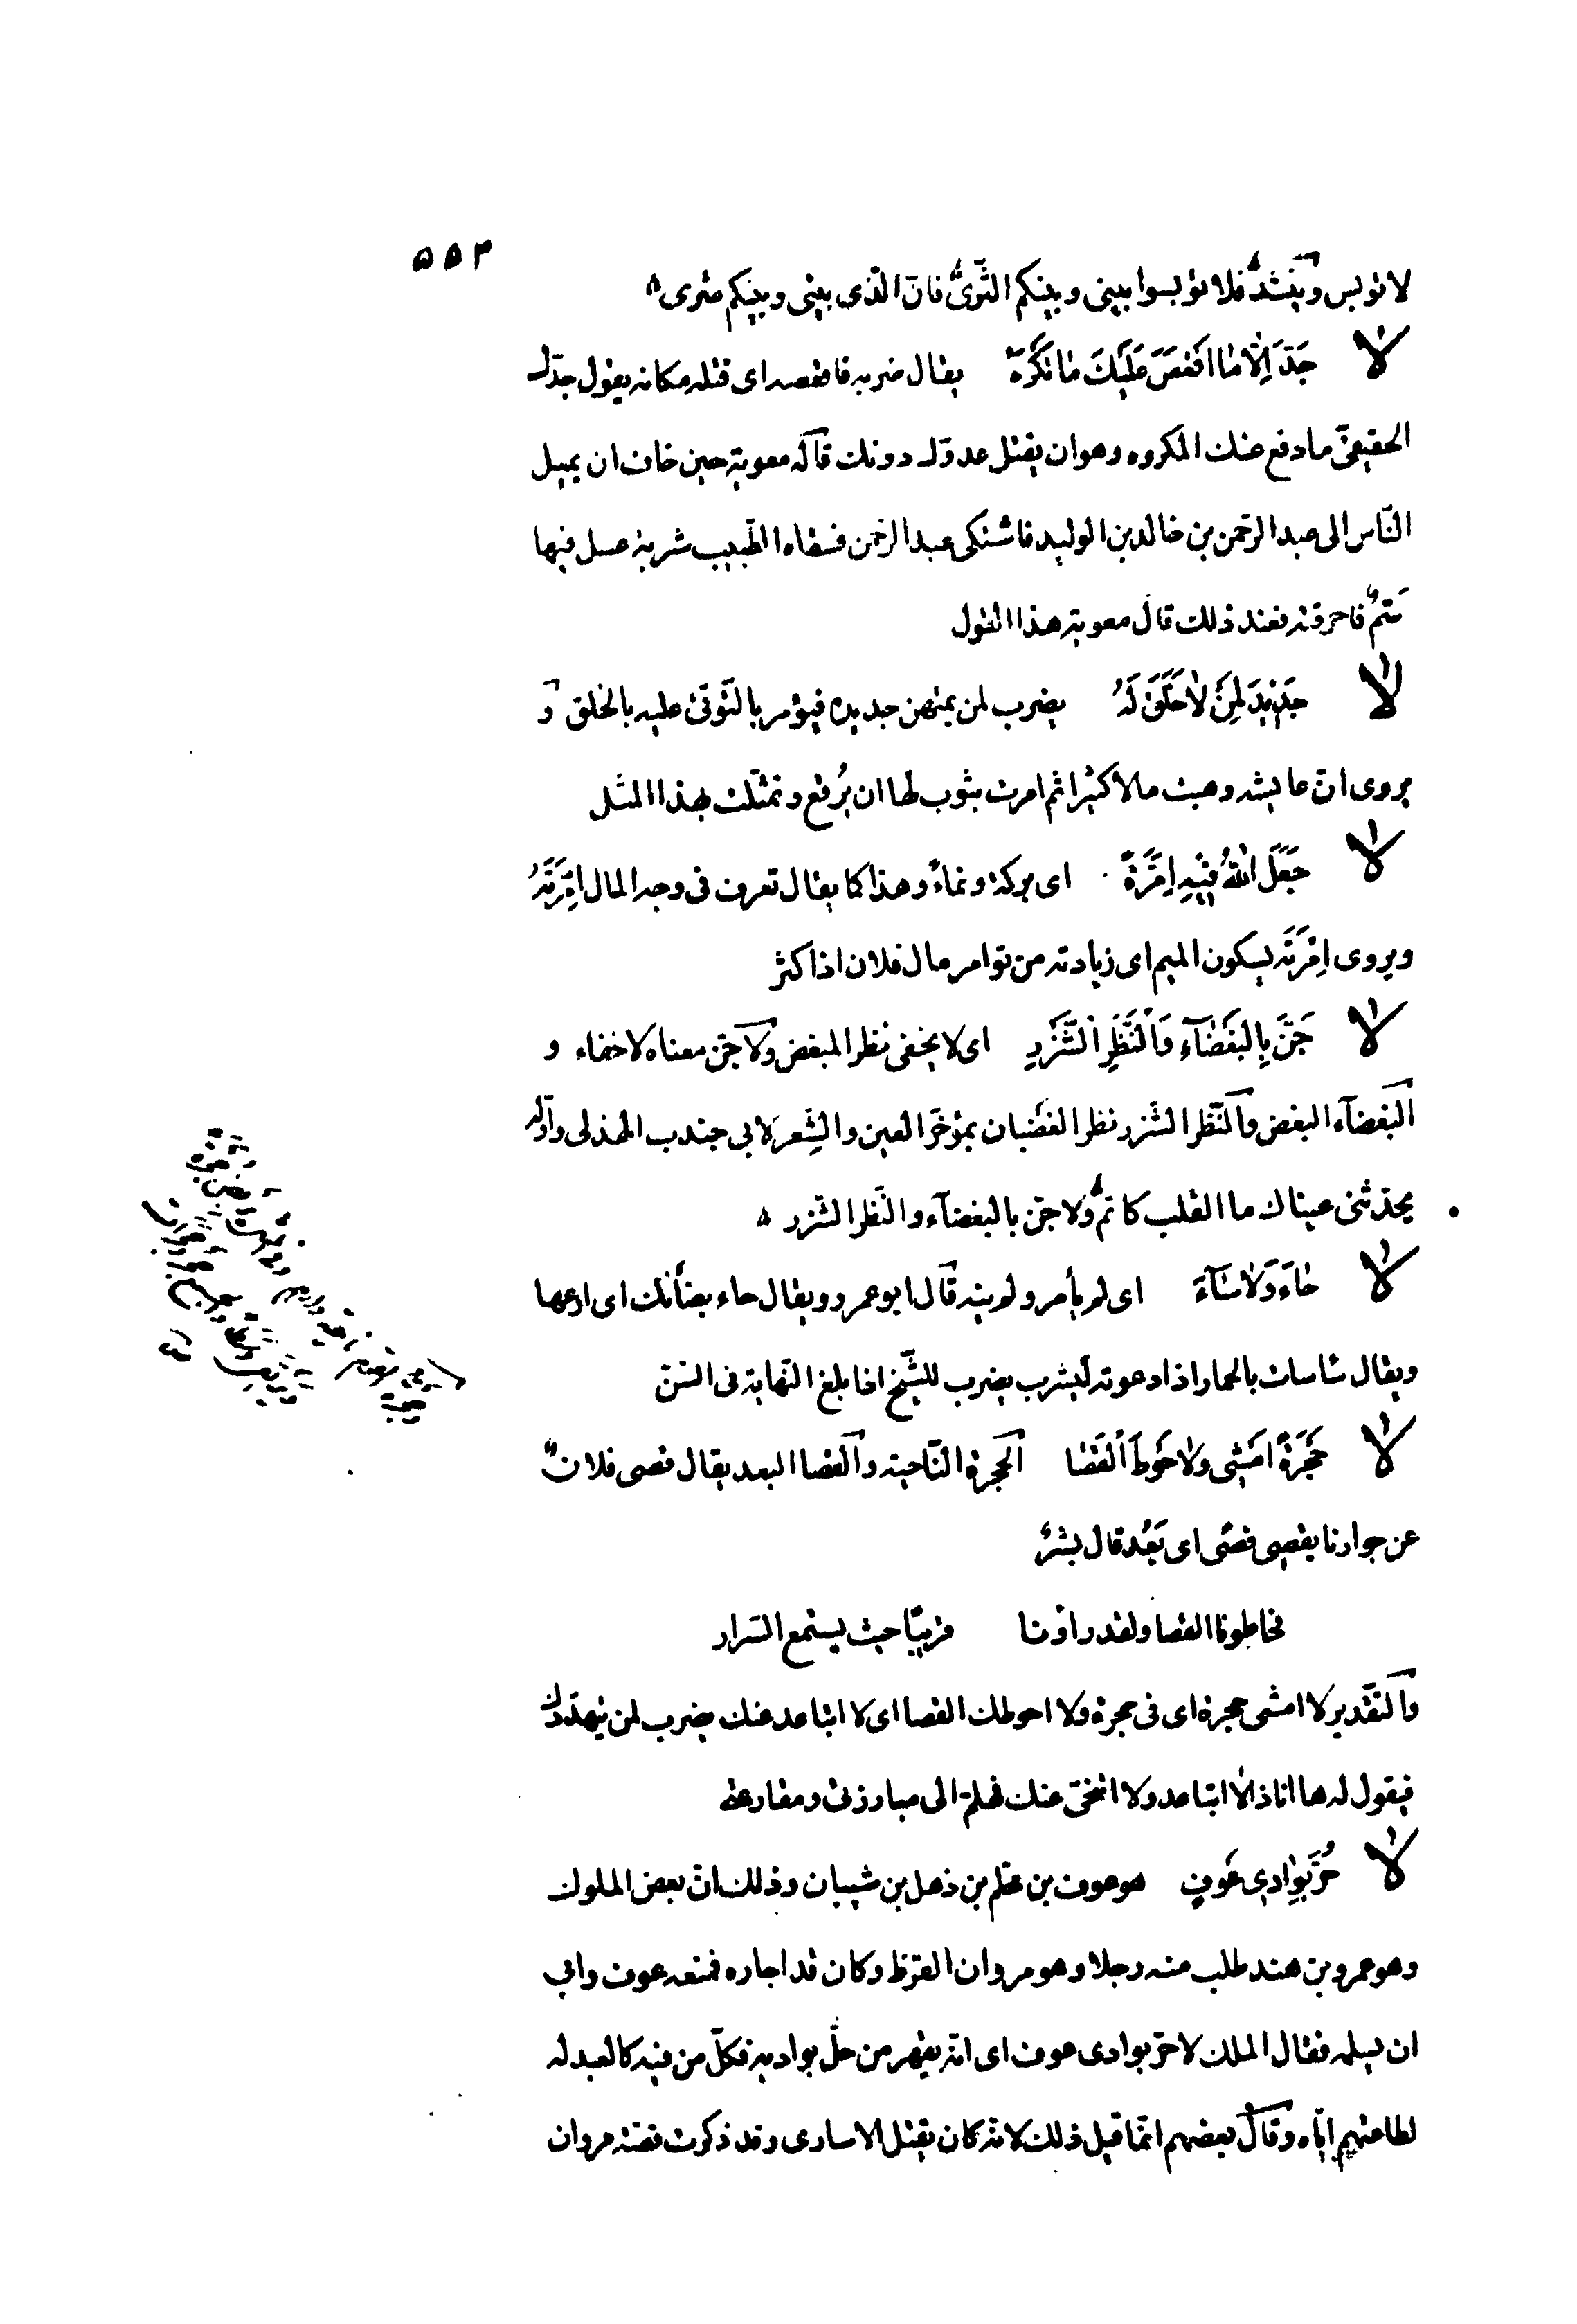 ٥٥٣
لا تؤبس وينشد فلا تؤبسوا بينى وبينكم الثّرىٰ فانّ الّذى بينى وبينكم مثرى
لا جَدَّ اِلّا مٰا اَقْعَصَ عَلَيْكَ مٰا تَكْرَهُ يقال ضربه فاقعصه اى قتله مكانه يقول جدّك
الحقيقىّ ما دفع عنك المكروه وهو ان يقتل عدوّك دونك قاله معوية حين خاف ان يميل
النّاس الى عبد الرحمن بن خالد بن الوليد فاشتكى عبد الرحمن فسقاه الطّبيب شربة عسل فيها
سَمٌّ فاحرقته فعند ذلك قال معوية هذا القول
لا جَدِيْدَ لِمَنْ لاٰ خَلَقَ لَهُ يضرب لمن يمتهن جديده فيؤمر بالتّوقّى عليه بالخلق و
يروى انّ عايشه وهبت مالا كثيرا ثم امرت بثوب لها ان يُرقع وتمثّلت بهذا المثل
لا جَعَلَ اللهُ فِيْهِ اِمَّرَةً اى بركة ونماءً وهذا كما يقال تعرف فى وجه المال اِمَّرَتَهُ
ويروى اَمْرَتَه بسكون الميم اى زيادته من توامر مال فلان اذا كثر
لا جَنَّ بِالْبَغْضٰآءِ وَالْنَّظَرِ الْشَّزْرِ اى لا يخفى نظر المبغض ولا جنّ معناه لا خفاء و
البغضآء البغض والنّظر الشّزر نظر الغضبان بمؤخّر العين والشِعر لابى جندب الهذلى واوّله
يحدّثنى عيناك ما القلب كاتم ولا جنّ بالبغضآء والنّظر الشّزر
لا حٰاءَ وَلاٰ سٰآءَ اى لم يأمر ولم ينه قال ابو عمرو ويقال حاء بضأنك اى ادعها
ويقال سأسأت بالحمار اذا دعوته ليشرب يضرب للشّيخ اذا بلغ النّهاية فى السّنّ
لا حَجْرَةً اَمْشِى ولاٰ حَوْطَ الْقَصٰا الحجرة النّاحية والقصا البعد يقال قصى فلانٌ
عن جوارنا يقصى قصًى اى بَعُد قال بشرٌ
فحاطونا القصا ولقد راونا قريبًا حيث يستمع السّرار
والتّقدير لا امشى حجرة اى فى حجرة ولا احوطك القصا اى لا اتباعد عنك يضرب لمن يتهدّدك
فيقول له ها انا ذا لا اتباعد ولا اتنحّى عنك فهلمّ الى مبارزتى ومقارعتى
لا حُرَّ بِوٰادِى عَوْفٍ هو عوف بن محلّم بن ذهل بن شيبان وذلك انّ بعض الملوك
وهو عمرو بن هند طلب منه رجلا وهو مروان القرظ وكان قد اجاره فمنعه عوف وابى
ان يسلمه فقال الملك لا حرّ بوادى عوف اى انّه يقهر من حلّ بواديه فكلّ من فيه كالعبد له
لطاعتهم ايّاه وقال بعضهم انّما قيل ذلك لانّه كان يقتل الاسارى وقد ذكرت قصّة مروان